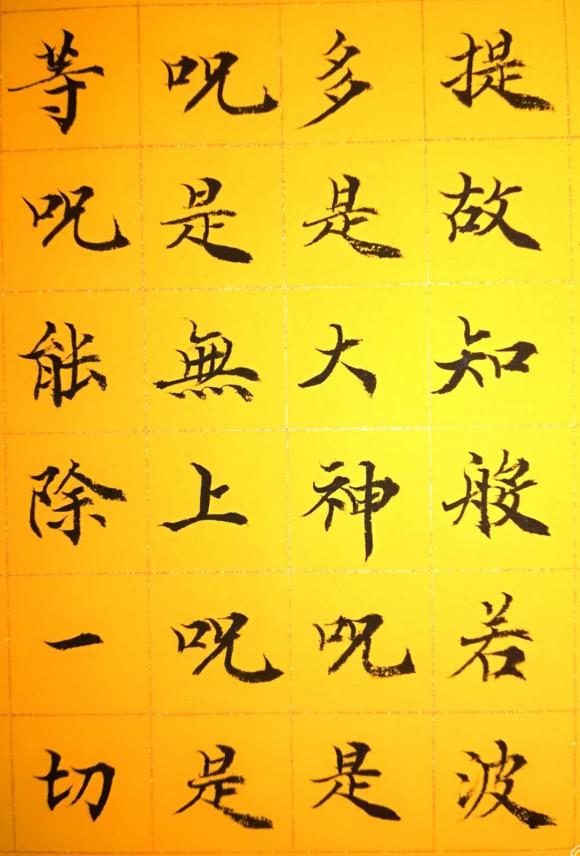 提故知般若波
多是大神咒是
呪是無上呪是
等呪能除一切